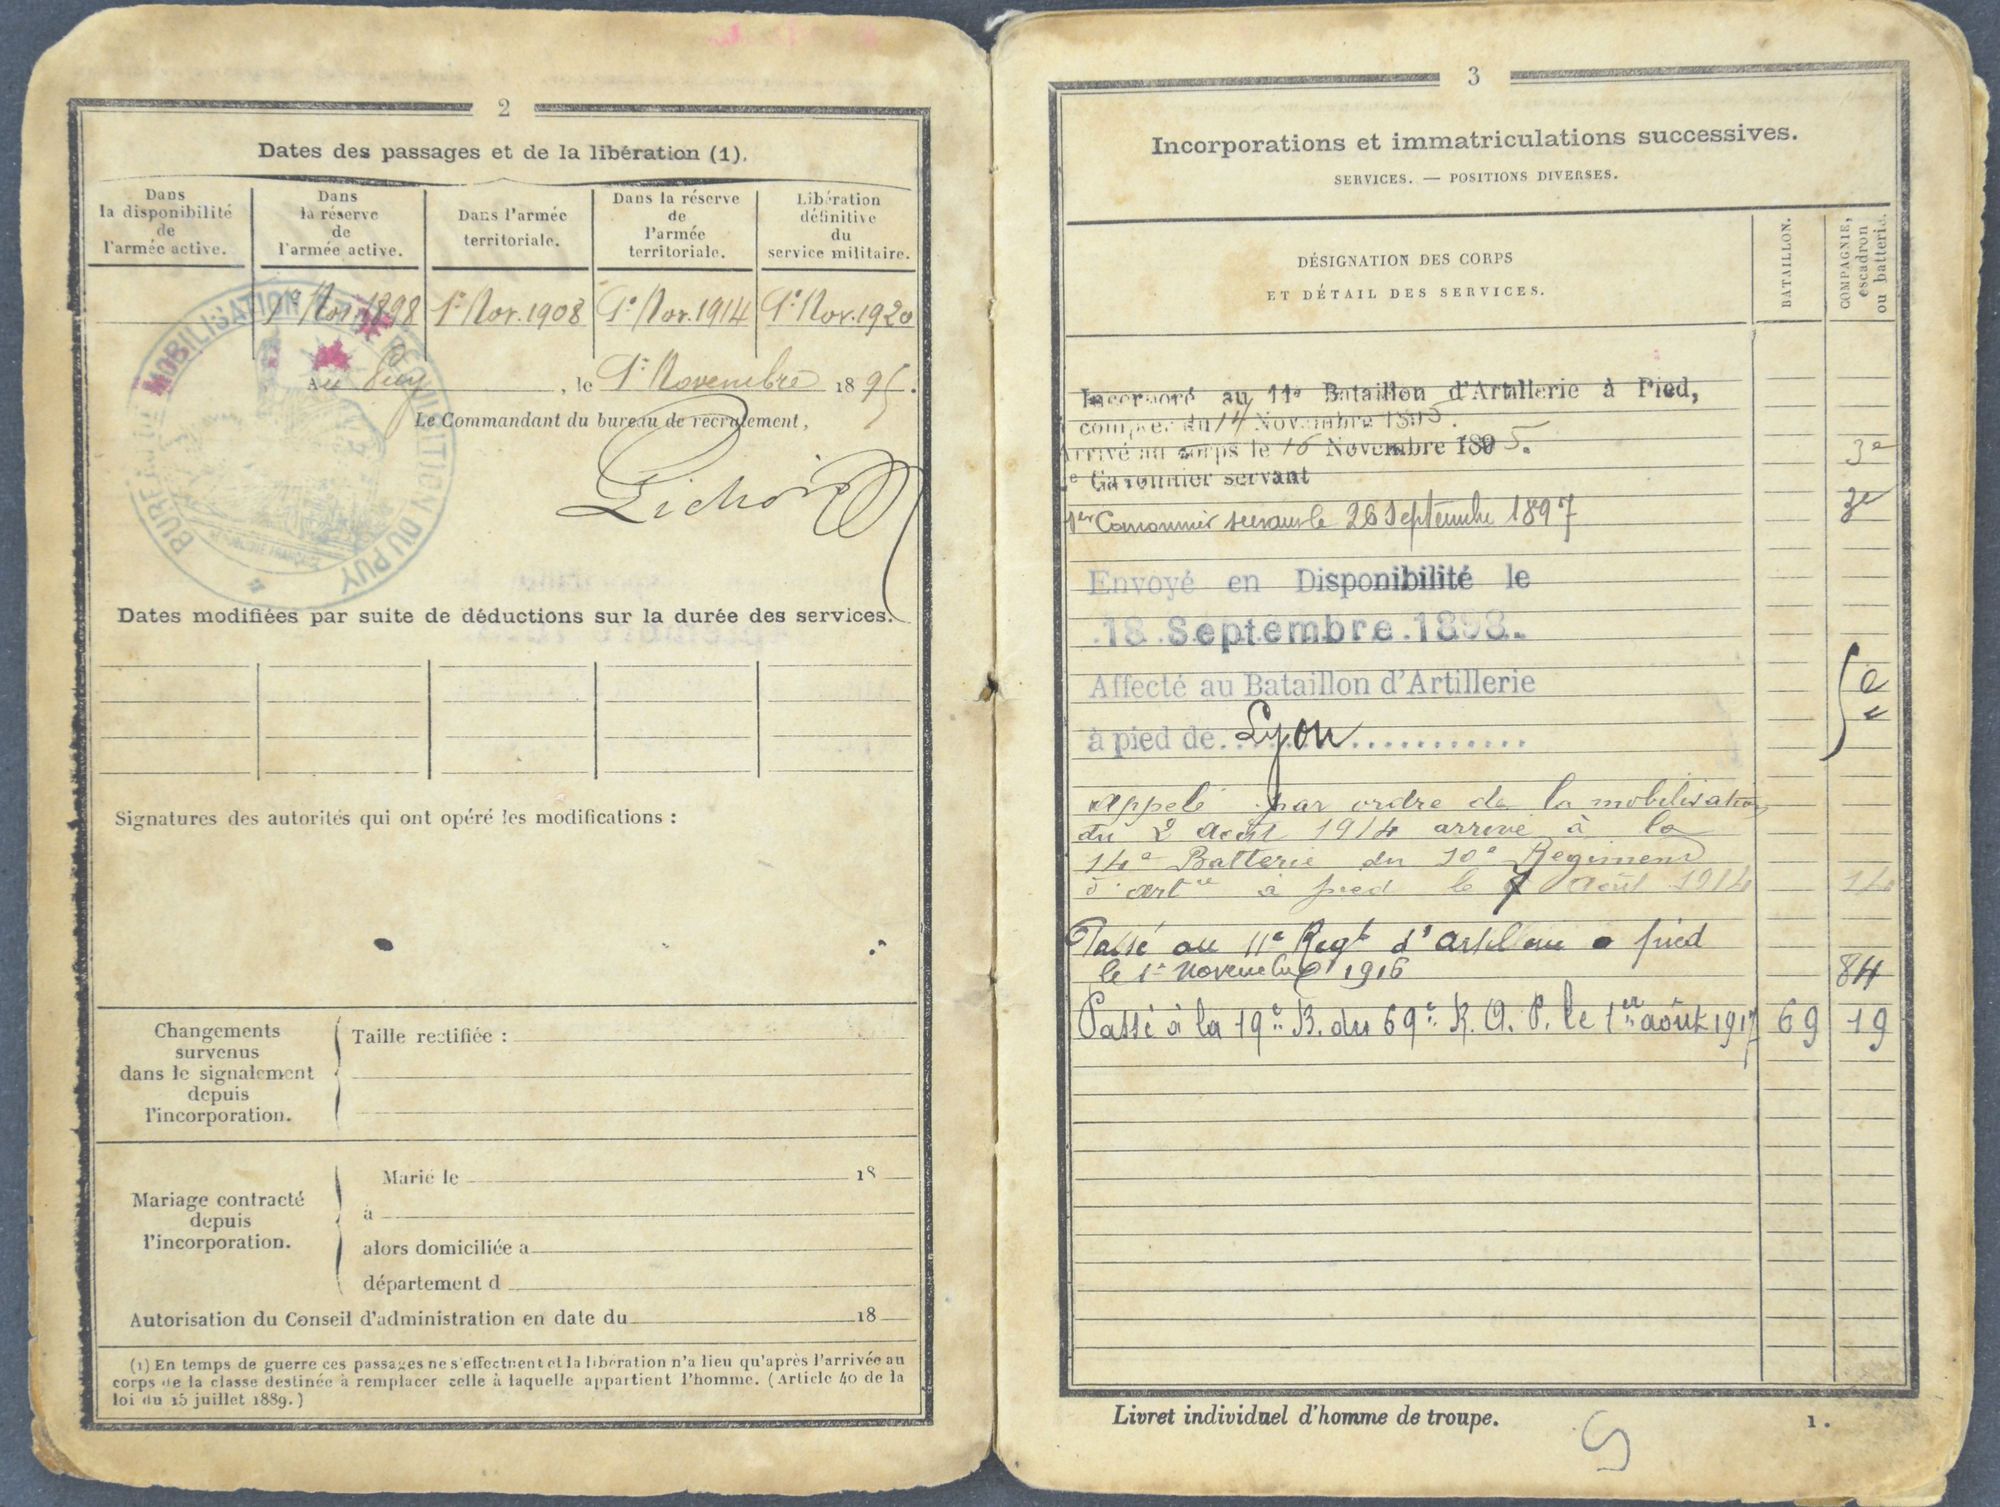 2
Dates des passages et de la libération (1).
Dans
la disponibilité
de
l'armée active.
Dans
la réserve
de
l'armée active.
Dans l'armée
territoriale.
Dans la réserve
de
l'armée
territoriale.
Libération
définitive
du
service militaire.
1er Nov. 1898
1er Nov. 1908
1er Nov. 1914
1er Nov. 1920
Au Puy, le 1er Novembre 1895.
Le Commandant du bureau de recrutement,
Pichon
MOBILISATION RÉQUISITION DU PUY
RÉPUBLIQUE FRANÇAISE
Dates modifiées par suite de déductions sur la durée des services.
Signatures des autorités qui ont opéré les modifications :
Changements
survenus
dans le signalement
depuis
l'incorporation.
Taille rectifiée :
Mariage contracté
depuis
l'incorporation.
Marié le 18
à
alors domiciliée à
département d
Autorisation du Conseil d'administration en date du 18
(1) En temps de guerre ces passages ne s'effectuent et la libération n'a lieu qu'après l'arrivée au
corps de la classe destinée à remplacer celle à laquelle appartient l'homme. (Article 40 de la
loi du 15 juillet 1889.)
3
Incorporations et immatriculations successives.
SERVICES. — POSITIONS DIVERSES.
DÉSIGNATION DES CORPS
ET DÉTAIL DES SERVICES.
BATAILLON.
COMPAGNIE,
escadron
ou batterie.
Incorporé au 11e Bataillon d'Artillerie à Pied,
compter du 14 Novembre 1895.
Arrivé au corps le 16 Novembre 1895. 3e
2e Canonnier servant
1er Canonnier servant le 26 Septembre 1897 3e
Envoyé en Disponibilité le
18 Septembre 1898.
Affecté au Bataillon d'Artillerie 5e
à pied de Lyon
Appelé par ordre de la mobilisation
du 2 Août 1914 arrivé à la
14e Batterie du 10e Régiment
d'Artie à pied le Août 1914 14
Passé au 11e Regt d'Artillerie a pied
le 1er Novembre 1916 84
Passé à la 19e B. du 69e R. A. P. le 1er août 1917 69 19
Livret individuel d'homme de troupe.
1.